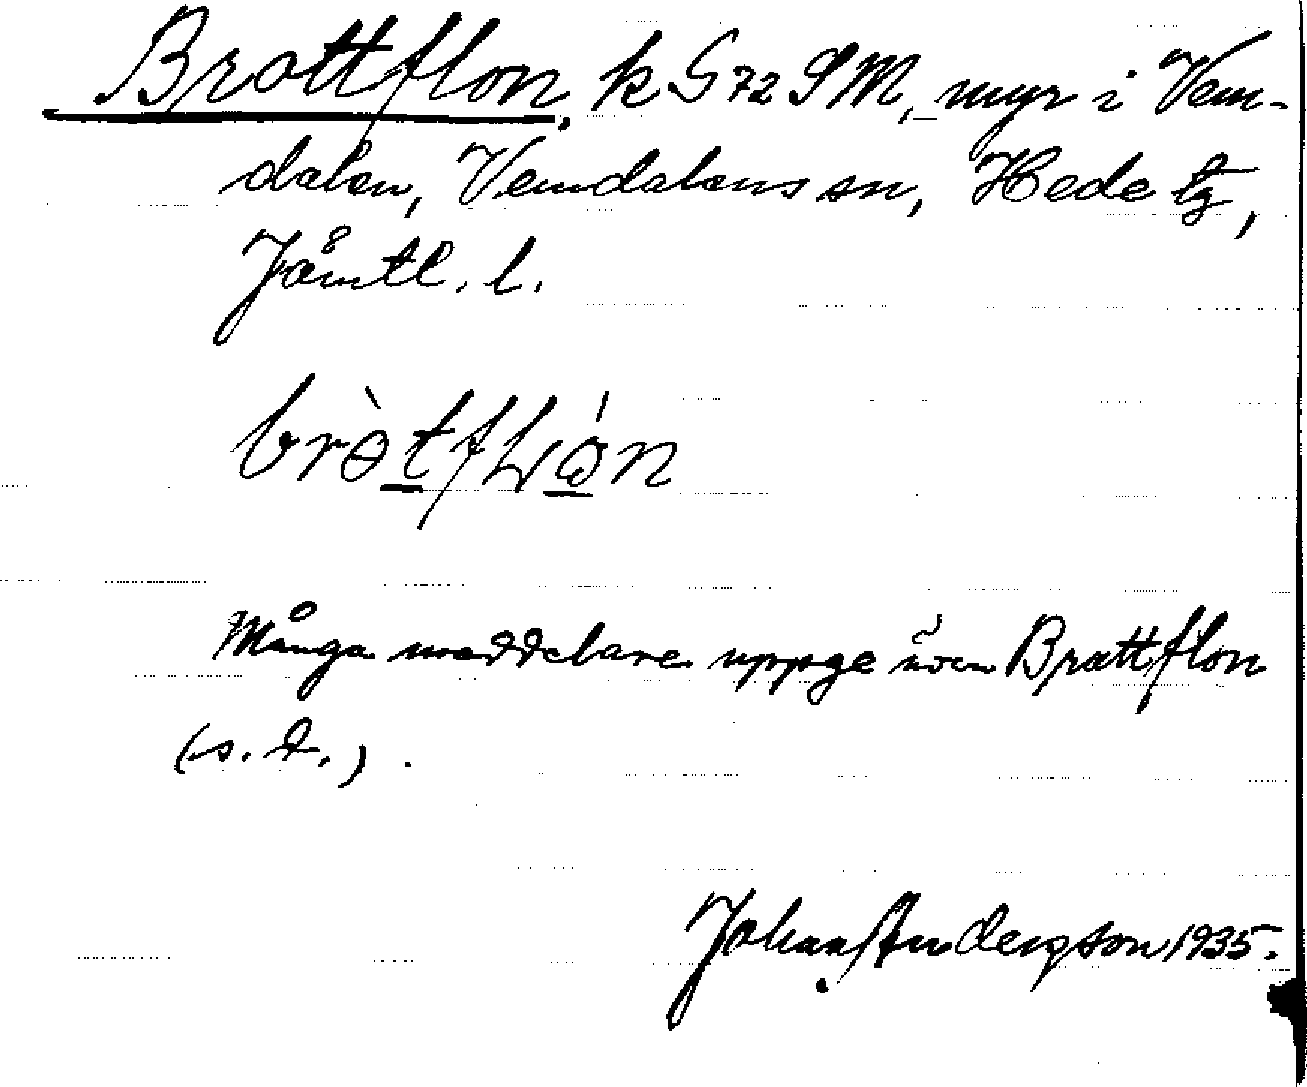 Brottflon, k G 72 SM, myr i Vem-
dalen, Vemdalens sn, Hede tg,
Jämtl. l.
brɵ̀t̲fLɷ̲́n
Många meddelare uppge även Brattflon
(s. d.).
Johan Andersson 1935.